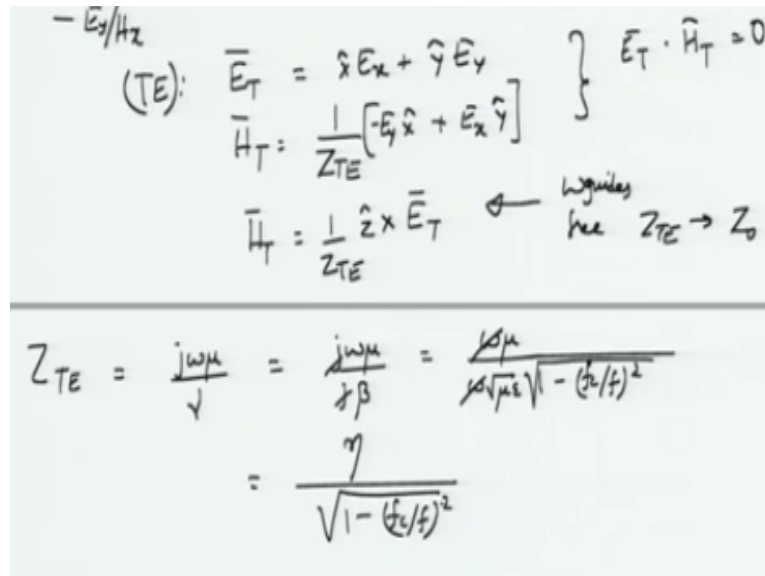 - Ey/Hx
(TE): E̅T = x̂ Ex + ŷ Ey } E̅T · H̅T = 0
H̅T = 1/ZTE [-Ey x̂ + Ex ŷ]
H̅T = 1/ZTE ẑ × E̅T ← wguides
free ZTE → Z0
ZTE = jωμ/γ = jωμ/jβ = ωμ/ω√με√1 - (fc/f)²
= η/√1 - (fc/f)²